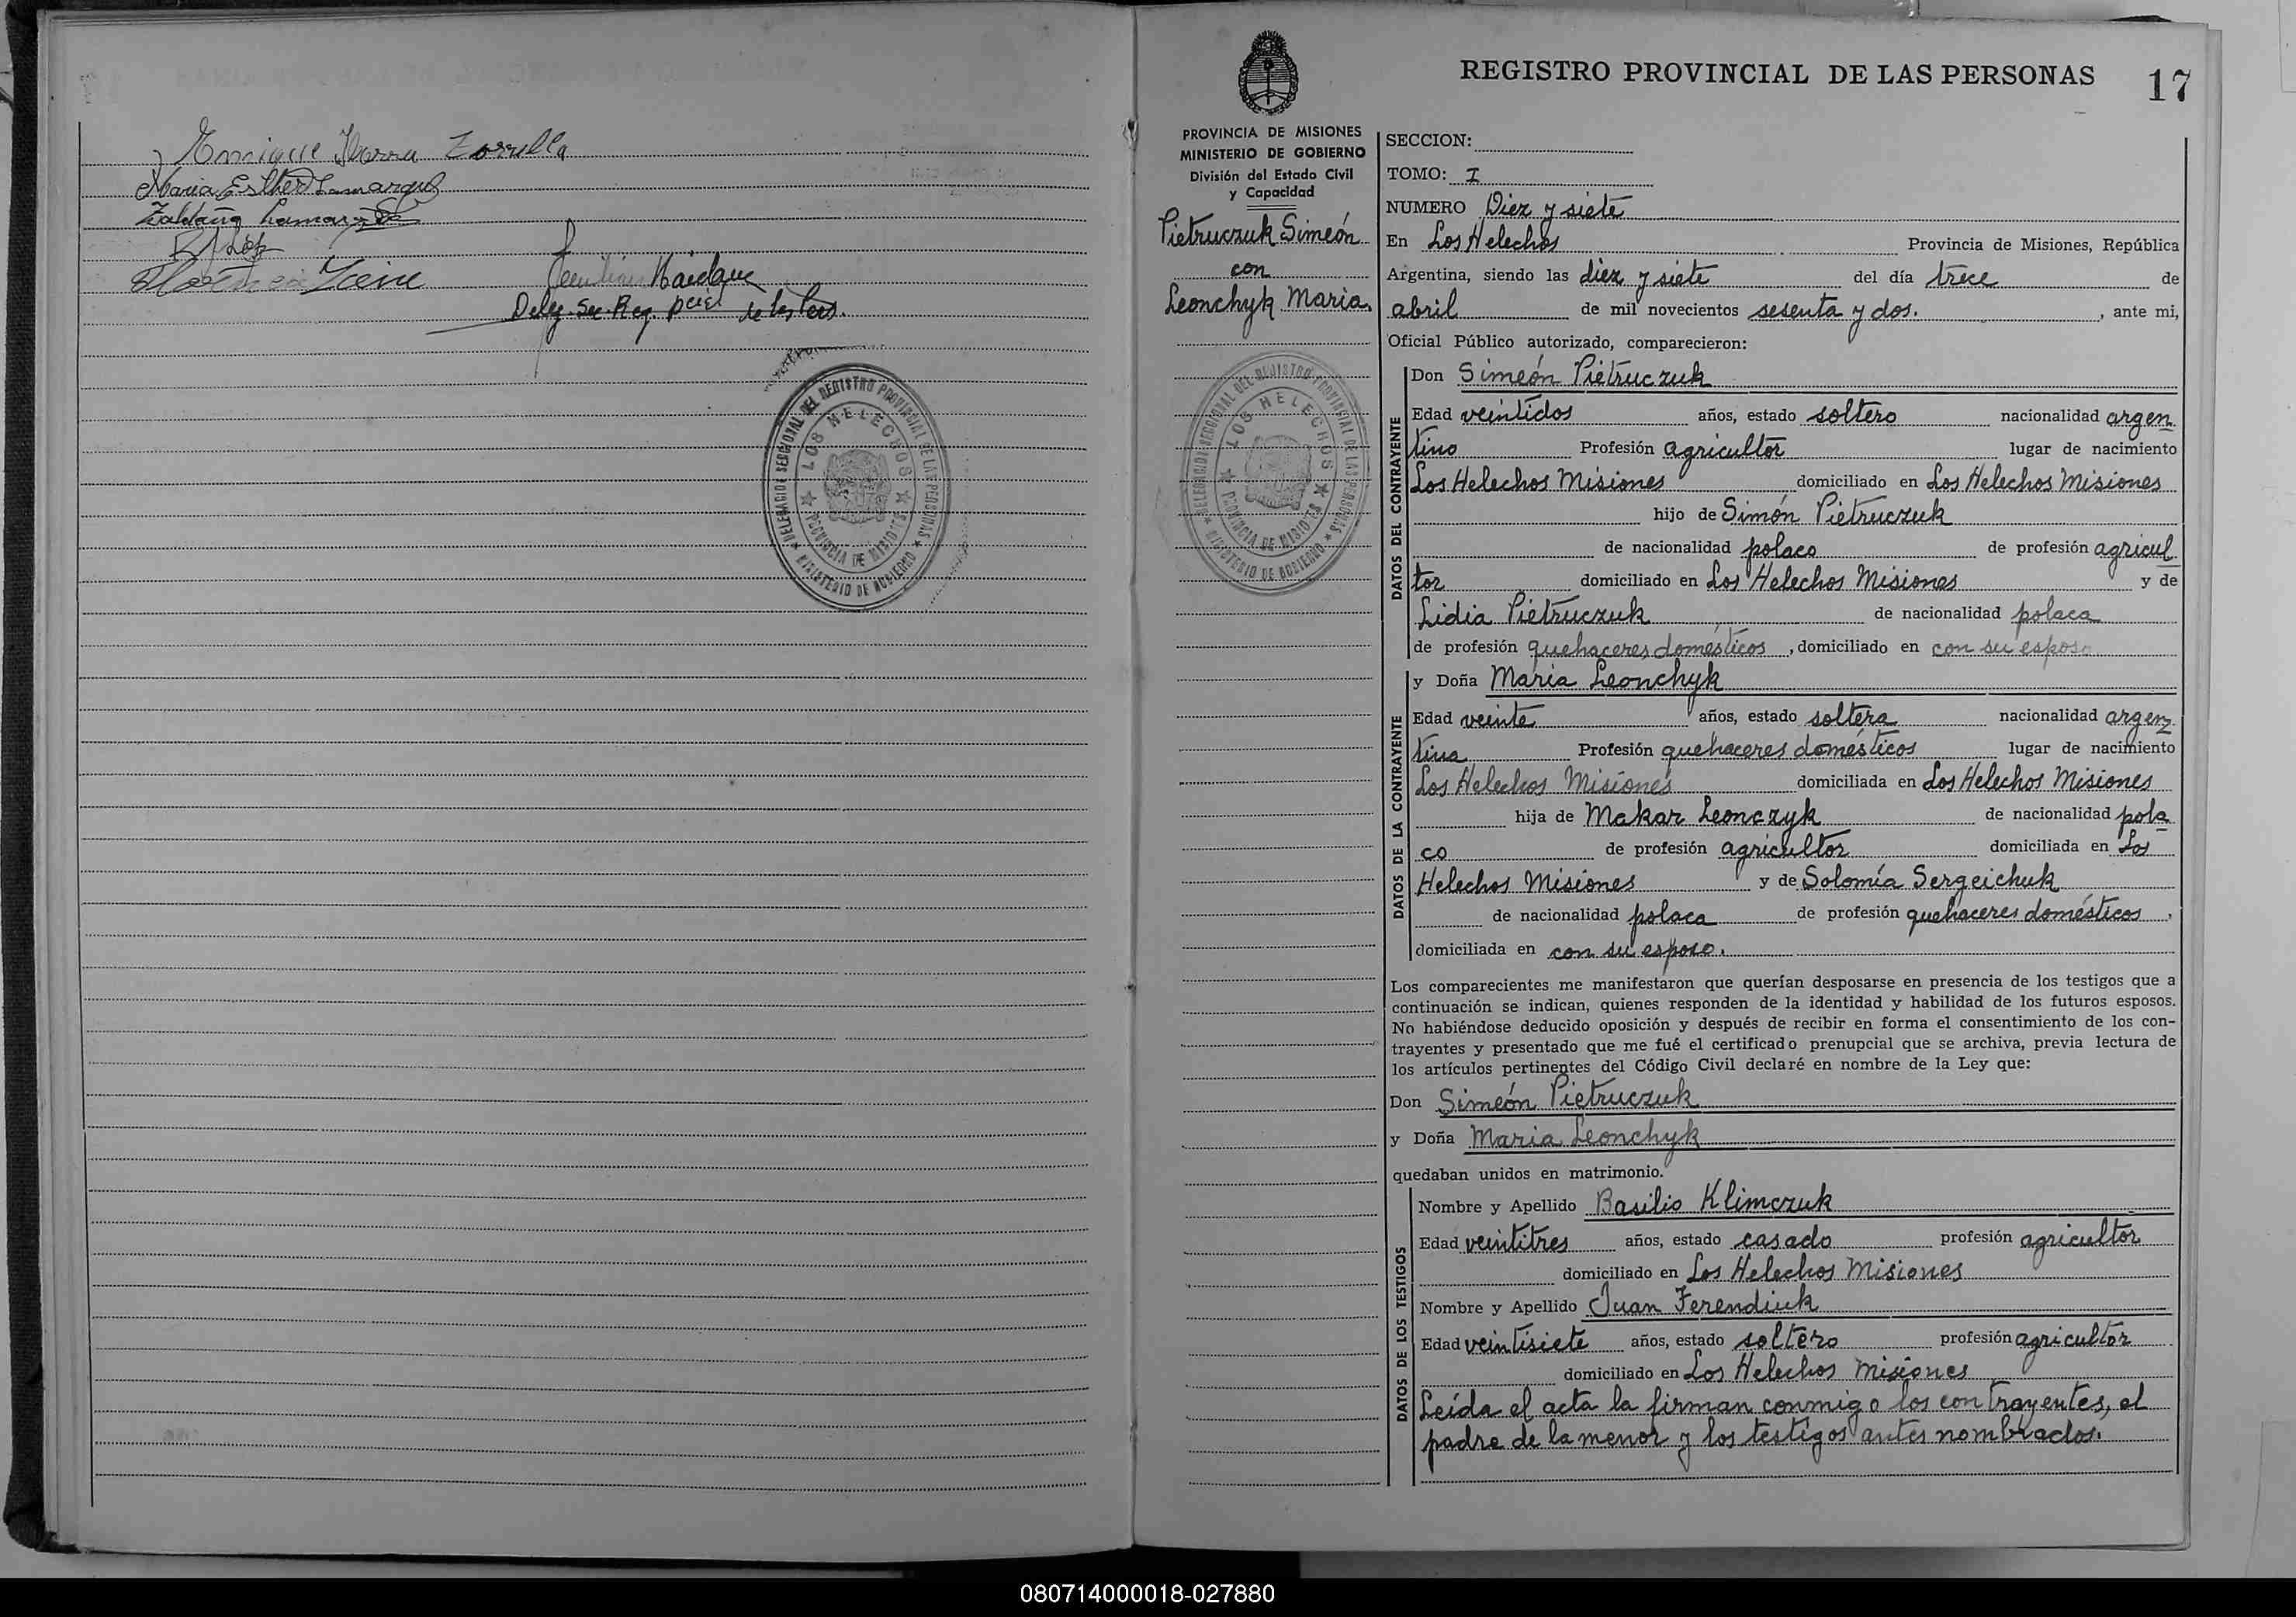 Enrique Ibarra Zorrilla
Maria Esther Lamarque
Zaldaña Lamarque
Deleg. Sec. Reg. Pcial de las Pers.
DELEGACION SECCIONAL DEL REGISTRO PROVINCIAL DE LAS PERSONAS
LOS HELECHOS
PROVINCIA DE MISIONES
MINISTERIO DE GOBIERNO
REGISTRO PROVINCIAL DE LAS PERSONAS 17
PROVINCIA DE MISIONES
MINISTERIO DE GOBIERNO
División del Estado Civil
y Capacidad
Pietruczuk Simeón
con
Leonchyk Maria.
DELEGACION SECCIONAL DEL REGISTRO PROVINCIAL DE LAS PERSONAS
LOS HELECHOS
PROVINCIA DE MISIONES
MINISTERIO DE GOBIERNO
SECCION:
TOMO: I
NUMERO Diez y siete
En Los Helechos Provincia de Misiones, República
Argentina, siendo las diez y siete del día trece de
abril de mil novecientos sesenta y dos. , ante mi,
Oficial Público autorizado, comparecieron:
DATOS DEL CONTRAYENTE
Don Simeón Pietruczuk
Edad veintidos años, estado soltero nacionalidad argen
tino Profesión agricultor lugar de nacimiento
Los Helechos Misiones domiciliado en Los Helechos Misiones
hijo de Simón Pietruczuk
de nacionalidad polaco de profesión agricul
tor domiciliado en Los Helechos Misiones y de
Lidia Pietruczuk de nacionalidad polaca
de profesión quehaceres domésticos , domiciliado en con su esposo
DATOS DE LA CONTRAYENTE
y Doña Maria Leonchyk
Edad veinte años, estado soltera nacionalidad argen
tina Profesión quehaceres domésticos lugar de nacimiento
Los Helechos Misiones domiciliada en Los Helechos Misiones
hija de Makar Leonczyk de nacionalidad pola
co de profesión agricultor domiciliada en Los
Helechos Misiones y de Solomía Sergeichuk
de nacionalidad polaca de profesión quehaceres domésticos ,
domiciliada en con su esposo.
Los comparecientes me manifestaron que querían desposarse en presencia de los testigos que a
continuación se indican, quienes responden de la identidad y habilidad de los futuros esposos.
No habiéndose deducido oposición y después de recibir en forma el consentimiento de los con-
trayentes y presentado que me fué el certificado prenupcial que se archiva, previa lectura de
los artículos pertinentes del Código Civil declaré en nombre de la Ley que:
Don Simeón Pietruczuk
y Doña Maria Leonchyk
quedaban unidos en matrimonio.
DATOS DE LOS TESTIGOS
Nombre y Apellido Basilio Klimczuk
Edad veintitres años, estado casado profesión agricultor
domiciliado en Los Helechos Misiones
Nombre y Apellido Juan Ferendiuk
Edad veintisiete años, estado soltero profesión agricultor
domiciliado en Los Helechos Misiones
Leída el acta la firman conmigo los contrayentes, el
padre de la menor y los testigos antes nombrados.
080714000018-027880